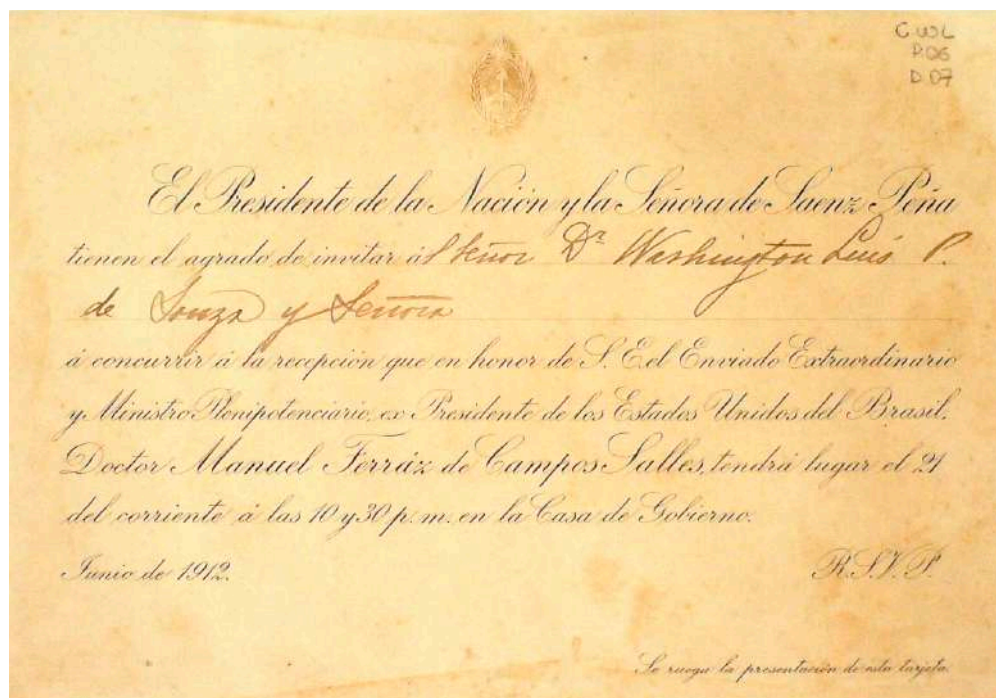 C WL
P.06
D 07
El Presidente de la Nación y la Señora de Saenz Peña
tienen el agrado de invitar ál Señor Dr Washington Luis P.
de Souza y Señora
á concurrir á la recepción que en honor de S. E. el Enviado Extraordinario
y Ministro Plenipotenciario, ex Presidente de los Estados Unidos del Brasil,
Doctor Manuel Ferráz de Campos Salles, tendrá lugar el 21
del corriente á las 10 y 30 p. m. en la Casa de Gobierno.
Junio de 1912.
R.S.V.P.
Se ruega la presentación de esta tarjeta.